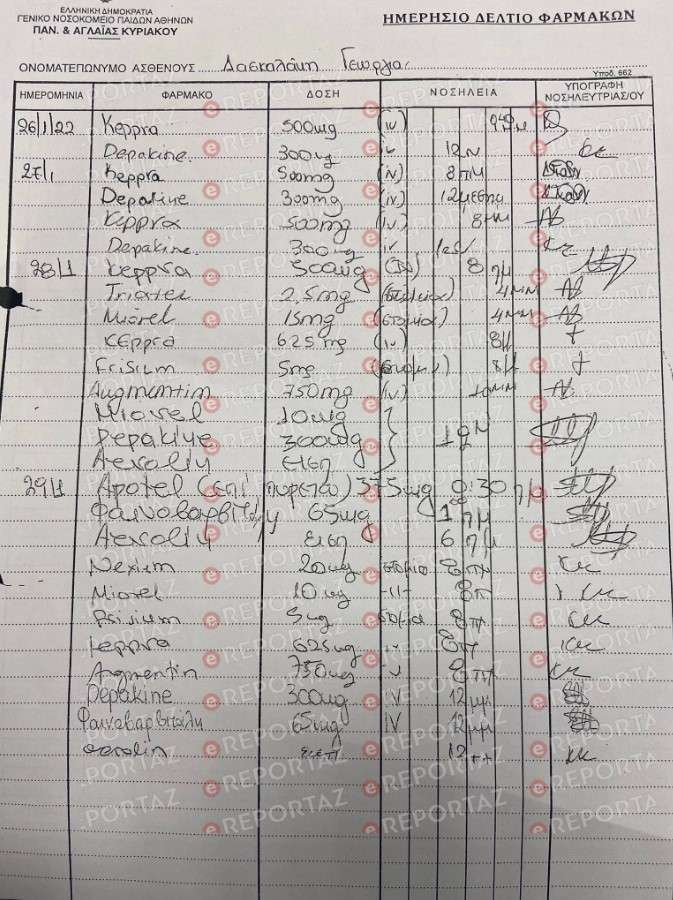 ΕΛΛΗΝΙΚΗ ΔΗΜΟΚΡΑΤΙΑ
ΓΕΝΙΚΟ ΝΟΣΟΚΟΜΕΙΟ ΠΑΙΔΩΝ ΑΘΗΝΩΝ
ΠΑΝ. & ΑΓΛΑΪΑΣ ΚΥΡΙΑΚΟΥ
ΗΜΕΡΗΣΙΟ ΔΕΛΤΙΟ ΦΑΡΜΑΚΩΝ
ΟΝΟΜΑΤΕΠΩΝΥΜΟ ΑΣΘΕΝΟΥΣ Δασκαλάκη Γεωργία
Υποδ. 662
ΗΜΕΡΟΜΗΝΙΑ ΦΑΡΜΑΚΟ ΔΟΣΗ ΝΟΣΗΛΕΙΑ ΥΠΟΓΡΑΦΗ ΝΟΣΗΛΕΥΤΡΙΑΣ/ΟΥ
26/1/22 Keppra 500mg (iv)
Depakine 300mg iv 12
27/1 Keppra 500mg (iv) 8πμ
Depakine 300mg (iv) 12μεση
Keppra 500mg (iv) 8μμ
Depakine 300mg iv
28/1 Keppra 500mg (iv) 8 πμ
Triatec 2,5mg 4μμ
Miorel 15mg 4μμ
Keppra 625mg (iv) 8μ
Frisium 5mg 8μ
Augmentin 750mg (iv)
Miorel 10mg
Depakine 300mg
Aerolin εισπ
29/1 Apotel (επί πυρετού) 375mg
Φαινοβαρβιτάλη 65mg 1 πμ
Aerolin εισπ 6 πμ
Nexium 20mg στόμα 8πμ
Miorel 10mg -11- 8π
Frisium 5mg στόμα 8πμ
Keppra 625mg iv 8πμ
Augmentin 750mg iv 8πμ
Depakine 300mg IV 12μμ
Φαινοβαρβιτάλη 65mg IV 12μμ
Aerolin εισπ 12
REPORTAZ